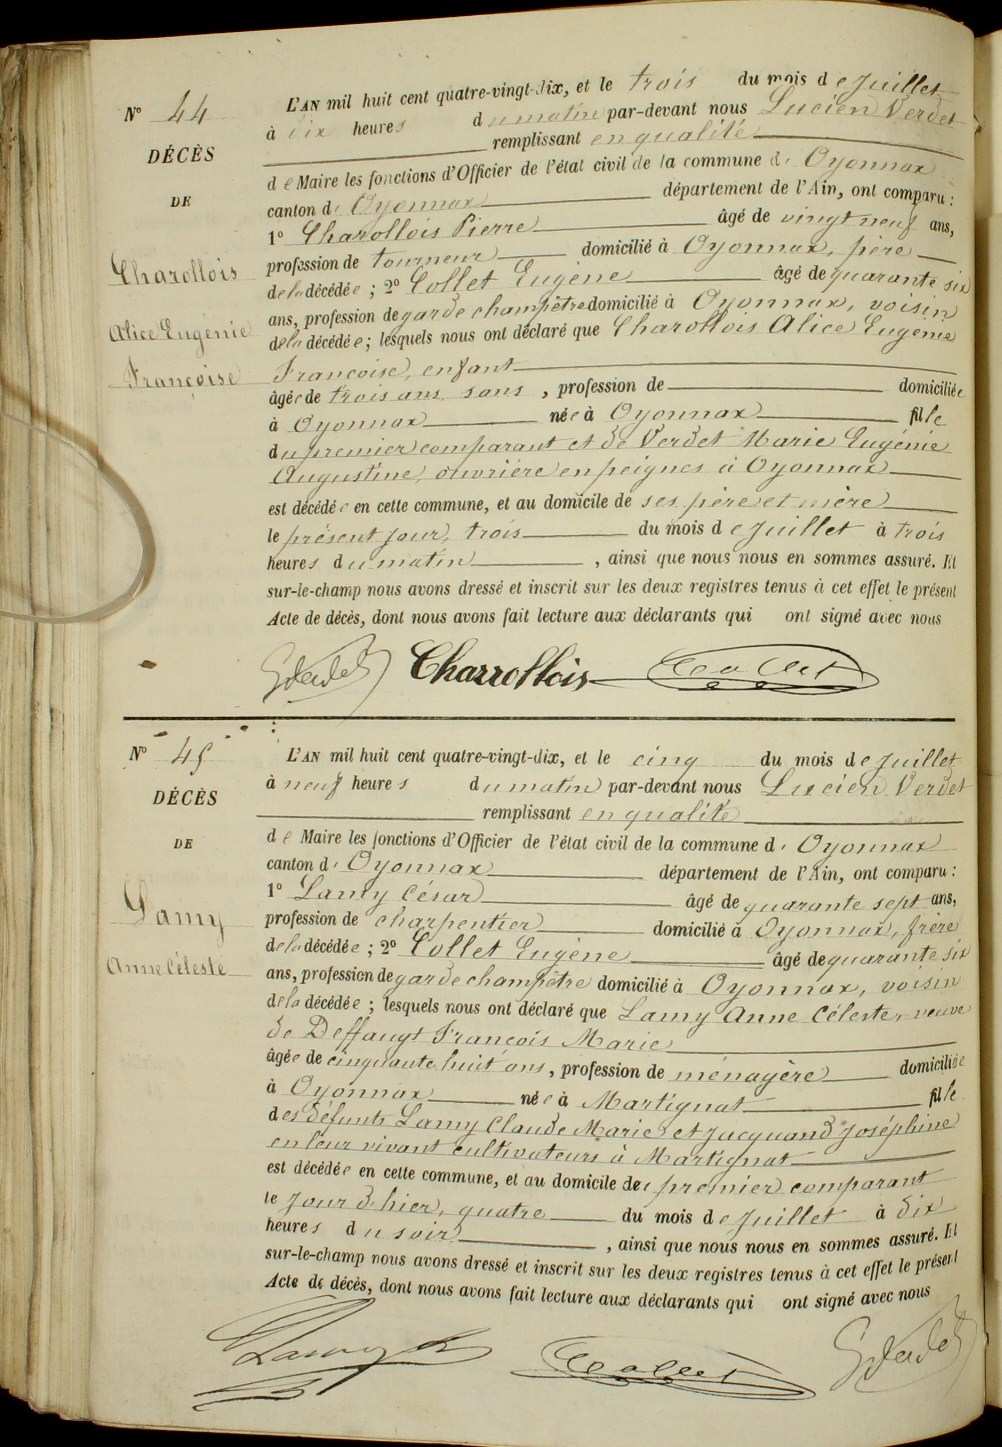 N° 44
DÉCÈS
DE
Charollois
Alice Eugénie
Françoise
L'AN mil huit cent quatre-vingt-dix, et le trois du mois de Juillet
à dix heures du matin par-devant nous Lucien Verdet
remplissant en qualité
de Maire les fonctions d'Officier de l'état civil de la commune d' Oyonnax
canton d' Oyonnax département de l'Ain, ont comparu :
1° Charollois Pierre âgé de vingt neuf ans,
profession de tourneur domicilié à Oyonnax, père
de la décédée ; 2° Collet Eugène âgé de quarante six
ans, profession de garde champêtre domicilié à Oyonnax, voisin
de la décédée ; lesquels nous ont déclaré que Charollois Alice Eugénie
Françoise, enfant
âgée de trois ans, sans , profession de domiciliée
à Oyonnax née à Oyonnax fille
du premier comparant et de Verdet Marie Eugénie
Augustine, ouvrière en peignes à Oyonnax
est décédée en cette commune, et au domicile de ses père et mère
le présent jour, trois du mois de Juillet à trois
heures du matin , ainsi que nous nous en sommes assuré. Et
sur-le-champ nous avons dressé et inscrit sur les deux registres tenus à cet effet le présent
Acte de décès, dont nous avons fait lecture aux déclarants qui ont signé avec nous
Charrollois Collet
N° 45
DÉCÈS
DE
Lamy
Anne Céleste
L'AN mil huit cent quatre-vingt-dix, et le cinq du mois de Juillet
à neuf heures du matin par-devant nous Lucien Verdet
remplissant en qualité
de Maire les fonctions d'Officier de l'état civil de la commune d' Oyonnax
canton d' Oyonnax département de l'Ain, ont comparu :
1° Lamy César âgé de quarante sept ans,
profession de charpentier domicilié à Oyonnax, frère
de la décédée ; 2° Collet Eugène âgé de quarante six
ans, profession de garde champêtre domicilié à Oyonnax, voisin
de la décédée ; lesquels nous ont déclaré que Lamy Anne Céleste, veuve
de Deffaugt François Marie
âgée de cinquante huit ans , profession de ménagère domiciliée
à Oyonnax née à Martignat fille
des défunts Lamy Claude Marie et Jacquand Joséphine
en leur vivant cultivateurs à Martignat
est décédée en cette commune, et au domicile du premier comparant
le jour d'hier, quatre du mois de Juillet à dix
heures du soir , ainsi que nous nous en sommes assuré. Et
sur-le-champ nous avons dressé et inscrit sur les deux registres tenus à cet effet le présent
Acte de décès, dont nous avons fait lecture aux déclarants qui ont signé avec nous
Lamy Collet